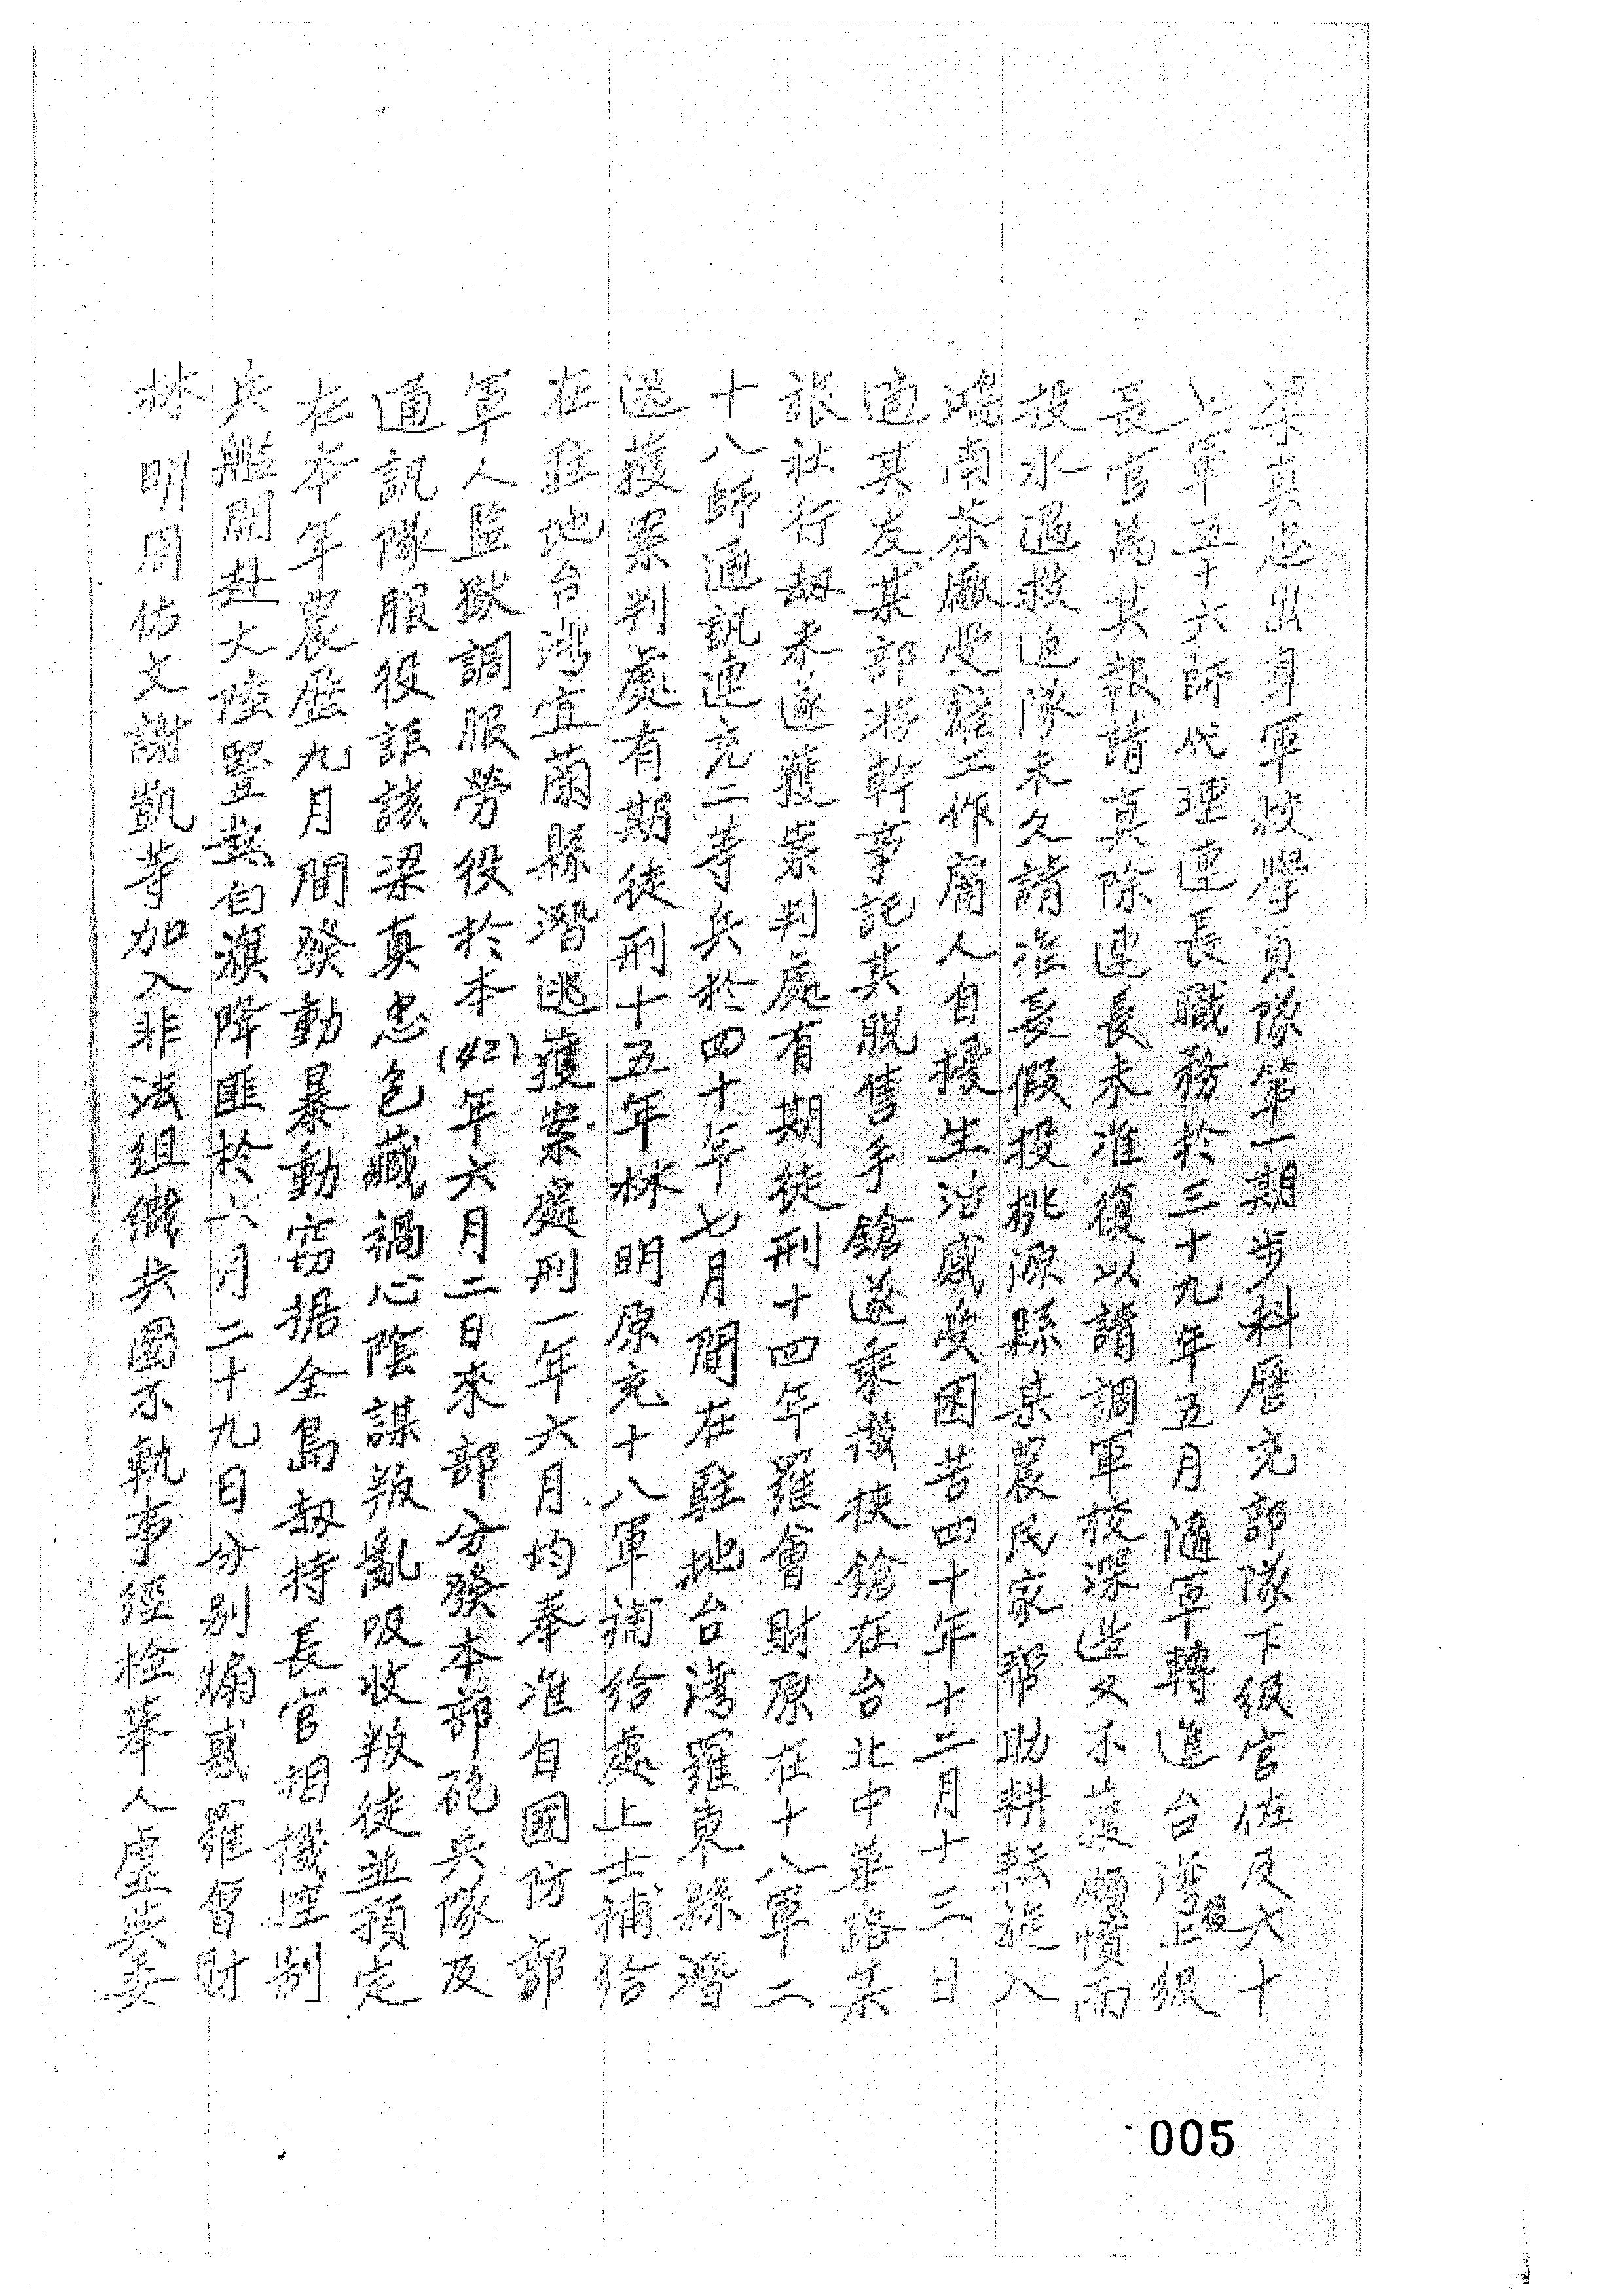 梁真忠出身軍校學員隊第一期步科歷充部隊下級官佐及七十
五軍五十六師代理連長職務於三十九年五月隨軍轉進台灣上級
長官為其報請真除連長未准復以請調軍校深造又不獲願憤而
投水遇救返隊未久請准長假投桃源縣某農民家幫助耕耘旋入
瑞南茶廠受雇工作屬人自擾生活感受困苦四十年十二月十三日
適其友某部游幹事託其脫售手鎗遂乘機挾鎗在台北中華路某
銀社行刼未遂獲案判處有期徒刑十四年羅會財原在十八軍二
十八師通訊連充二等兵於四十年七月間在駐地台灣羅東縣潛
逃獲案判處有期徒刑十五年林明原充十八軍補給處上士補給
在駐地台灣宜蘭縣潛逃獲案處刑一年六月均奉准自國防部
軍人監獄調服勞役於本(42)年六月二日來部分發本部砲兵隊及
通訊隊服役詎該梁真忠包藏禍心陰謀叛亂吸收叛徒並預定
在本年農歷九月間發動暴動竊据全島刼持長官相機控制
兵艦開赴大陸豎起白旗降匪於六月二十九日分別煽惑羅會財
林明周佑文謝凱等加入非法組織共圖不軌事經檢舉人盧英委